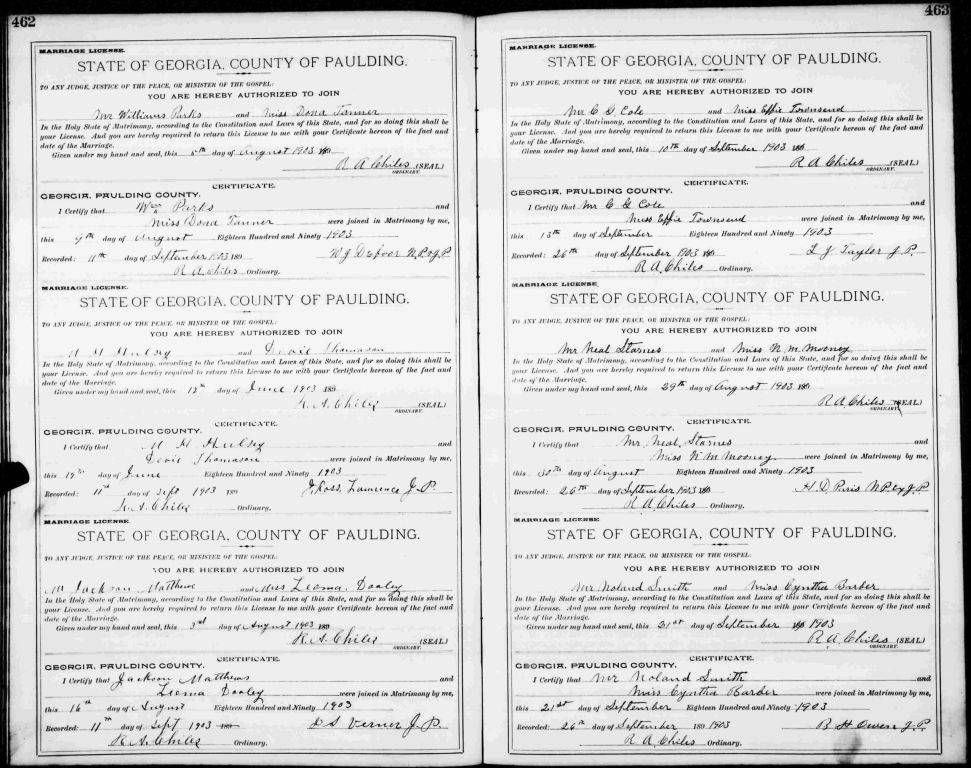 462
MARRIAGE LICENSE.
STATE OF GEORGIA, COUNTY OF PAULDING.
TO ANY JUDGE, JUSTICE OF THE PEACE, OR MINISTER OF THE GOSPEL:
YOU ARE HEREBY AUTHORIZED TO JOIN
Mr Williams Parks and Miss Dona Tanner
In the Holy State of Matrimony, according to the Constitution and Laws of this State, and for so doing this shall be
your License. And you are hereby required to return this License to me with your Certificate hereon of the fact and
date of the Marriage.
Given under my hand and seal, this 5th day of August 1903 189
R A Chiles (SEAL)
ORDINARY.
CERTIFICATE.
GEORGIA, PAULDING COUNTY.
I Certify that Wm Parks and
Miss Dona Tanner were joined in Matrimony by me,
this 9th day of August Eighteen Hundred and Ninety 1903
Recorded: 11th day of September 1903 189 W J Defoor N.P. & J.P
R A Chiles Ordinary.
MARRIAGE LICENSE.
STATE OF GEORGIA, COUNTY OF PAULDING.
TO ANY JUDGE, JUSTICE OF THE PEACE, OR MINISTER OF THE GOSPEL:
YOU ARE HEREBY AUTHORIZED TO JOIN
M H Hulsey and Dovie Thomason
In the Holy State of Matrimony, according to the Constitution and Laws of this State, and for so doing this shall be
your License. And you are hereby required to return this License to me with your Certificate hereon of the fact and
date of the Marriage.
Given under my hand and seal, this 13th day of June 1903 189
R. A. Chiles (SEAL)
ORDINARY.
CERTIFICATE.
GEORGIA, PAULDING COUNTY.
I Certify that M H Hulsey and
Dovie Thomason were joined in Matrimony by me,
this 19th day of June Eighteen Hundred and Ninety 1903
Recorded: 11th day of Sept 1903 189 J. Ross Lawrence J.P.
R. A. Chiles Ordinary.
MARRIAGE LICENSE.
STATE OF GEORGIA, COUNTY OF PAULDING.
TO ANY JUDGE, JUSTICE OF THE PEACE, OR MINISTER OF THE GOSPEL:
YOU ARE HEREBY AUTHORIZED TO JOIN
Mr Jackson Matthews and Miss Leoma Dooley
In the Holy State of Matrimony, according to the Constitution and Laws of this State, and for so doing this shall be
your License. And you are hereby required to return this License to me with your Certificate hereon of the fact and
date of the Marriage.
Given under my hand and seal, this 3rd day of August 1903 189
R. A. Chiles (SEAL)
ORDINARY.
CERTIFICATE.
GEORGIA, PAULDING COUNTY.
I Certify that Jackson Matthews and
Leoma Dooley were joined in Matrimony by me,
this 16th day of August Eighteen Hundred and Ninety 1903
Recorded: 11th day of Sept 1903 189 D S Verner J.P.
R. A. Chiles Ordinary.
463
MARRIAGE LICENSE.
STATE OF GEORGIA, COUNTY OF PAULDING.
TO ANY JUDGE, JUSTICE OF THE PEACE, OR MINISTER OF THE GOSPEL:
YOU ARE HEREBY AUTHORIZED TO JOIN
Mr C G Cole and Miss Effie Townsend
In the Holy State of Matrimony, according to the Constitution and Laws of this State, and for so doing this shall be
your License. And you are hereby required to return this License to me with your Certificate hereon of the fact and
date of the Marriage.
Given under my hand and seal, this 10th day of September 1903 189
R A Chiles (SEAL)
ORDINARY.
CERTIFICATE.
GEORGIA, PAULDING COUNTY.
I Certify that Mr C G Cole and
Miss Effie Townsend were joined in Matrimony by me,
this 13th day of September Eighteen Hundred and Ninety 1903
Recorded: 26th day of September 1903 189 L J Taylor J P.
R A. Chiles Ordinary.
MARRIAGE LICENSE.
STATE OF GEORGIA, COUNTY OF PAULDING.
TO ANY JUDGE, JUSTICE OF THE PEACE, OR MINISTER OF THE GOSPEL:
YOU ARE HEREBY AUTHORIZED TO JOIN
Mr Neal Starnes and Miss N. M. Mooney
In the Holy State of Matrimony, according to the Constitution and Laws of this State, and for so doing this shall be
your License. And you are hereby required to return this License to me with your Certificate hereon of the fact and
date of the Marriage.
Given under my hand and seal, this 29th day of August 1903 189
R A Chiles (SEAL)
ORDINARY.
CERTIFICATE.
GEORGIA, PAULDING COUNTY.
I Certify that Mr Neal Starnes and
Miss N. M. Mooney were joined in Matrimony by me,
this 30th day of August Eighteen Hundred and Ninety 1903
Recorded: 26th day of September 1903 189 H. D. Puris N.P. ex J.P.
R A Chiles Ordinary.
MARRIAGE LICENSE
STATE OF GEORGIA, COUNTY OF PAULDING.
TO ANY JUDGE, JUSTICE OF THE PEACE, OR MINISTER OF THE GOSPEL:
YOU ARE HEREBY AUTHORIZED TO JOIN
Mr Noland Smith and Miss Cyntha Barber
In the Holy State of Matrimony, according to the Constitution and Laws of this State, and for so doing this shall be
your License. And you are hereby required to return this License to me with your Certificate hereon of the fact and
date of the Marriage.
Given under my hand and seal, this 21st day of September 189 1903
R A. Chiles (SEAL)
ORDINARY.
CERTIFICATE.
GEORGIA, PAULDING COUNTY.
I Certify that Mr Noland Smith and
Miss Cyntha Barber were joined in Matrimony by me,
this 21st day of September Eighteen Hundred and Ninety 1903
Recorded: 26th day of September 189 1903 B H Owen J.P.
R A Chiles Ordinary.